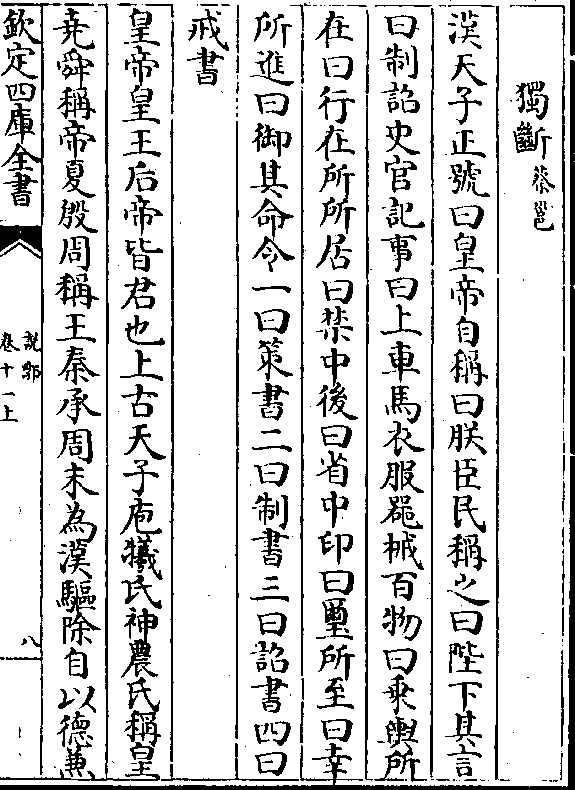 獨斷 蔡邕
漢天子正號曰皇帝自稱曰朕臣民稱之曰陛下其言
曰制詔史官記事曰上車馬衣服器械百物曰乘輿所
在曰行在所所居曰禁中後曰省中印曰璽所至曰幸
所進曰御其命令一曰策書二曰制書三曰詔書四曰
戒書
皇帝皇王后帝皆君也上古天子庖犧氏神農氏稱皇
堯舜稱帝夏殷周稱王秦承周末為漢驅除自以德兼
欽定四庫全書
說郛
卷十一上
八